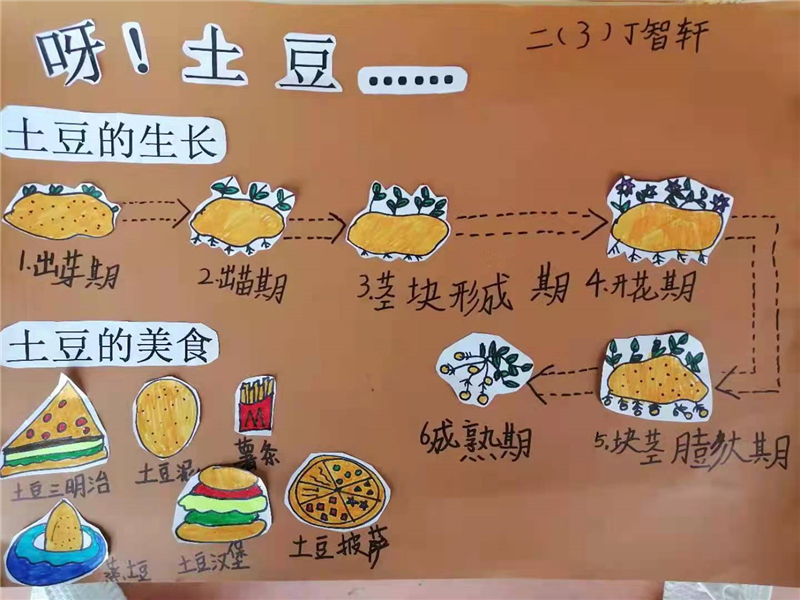 呀！土豆……
二（3）丁智轩
土豆的生长
1.出芽期
2.出苗期
3.茎块形成期
4.开花期
5.块茎膨大期
6成熟期
土豆的美食
土豆三明治
土豆泥
薯条
M
蒸土豆
土豆汉堡
土豆披萨